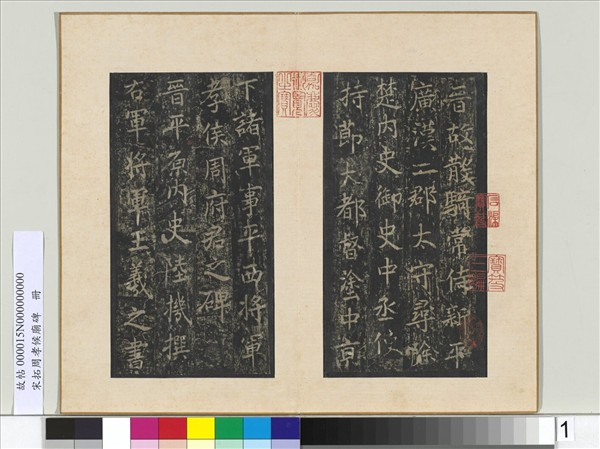 晉故散騎常侍新平
廣漢二郡太守尋除
楚內史御史中丞使
持節大都督塗中京
下諸軍事平西將軍
孝侯周府君之碑
晉平原內史陸機撰
右軍將軍王羲之書
故帖 000015N000000000
宋拓周孝侯廟碑 冊
1